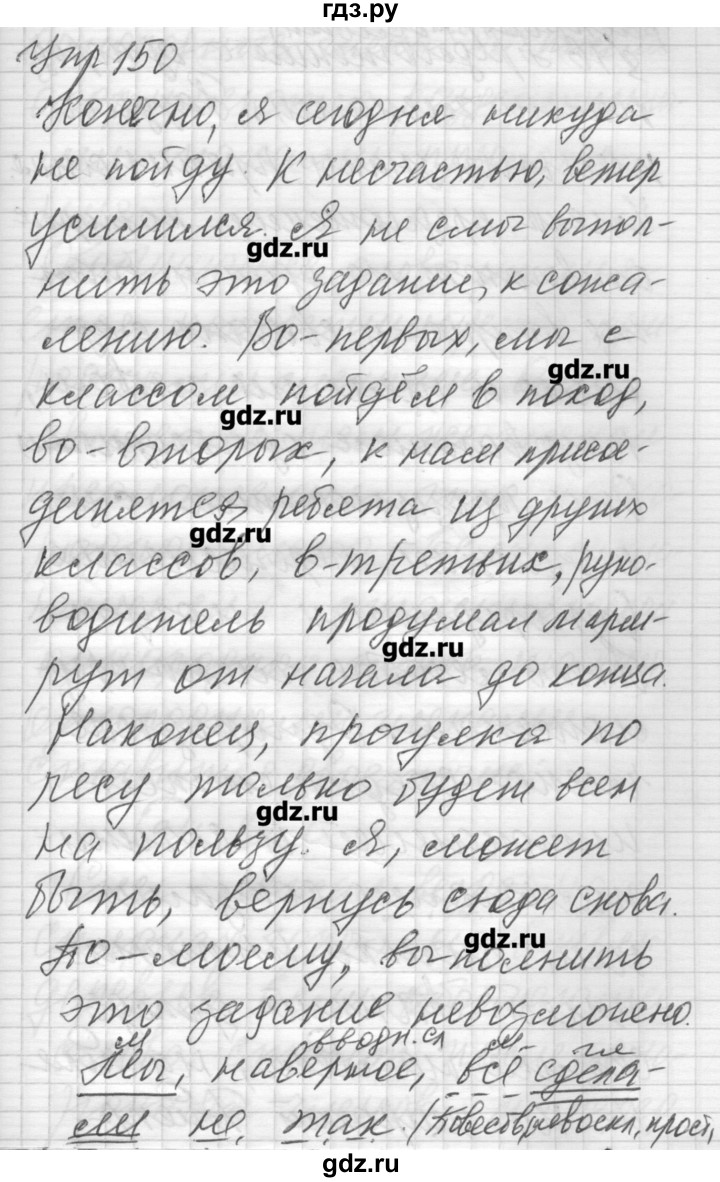 гдз.ру
Упр 150
Конечно, я сегодня никуда
не пойду. К несчастью, ветер
усилился. Я не смог выпол-
gdz.ru
нить это задание, к сожа-
лению. Во-первых, мы с
gdz.ru
классом пойдём в поход,
gdz.ru
во-вторых, к нам присое-
динятся ребята из других
gdz.ru
классов, в-третьих, руко-
водитель продумал марш-
gdz.ru
рут от начала до конца.
Наконец, прогулка по
лесу только будет всем
gdz.ru
на пользу. Я, может
быть, вернусь сюда снова.
gdz.ru
По-моему, выполнить
это задание невозможно.
м вводн.сл м. гл
Мы, наверное, всё сдела-
ли не так. (Повеств, невоскл, прост,
gdz.ru